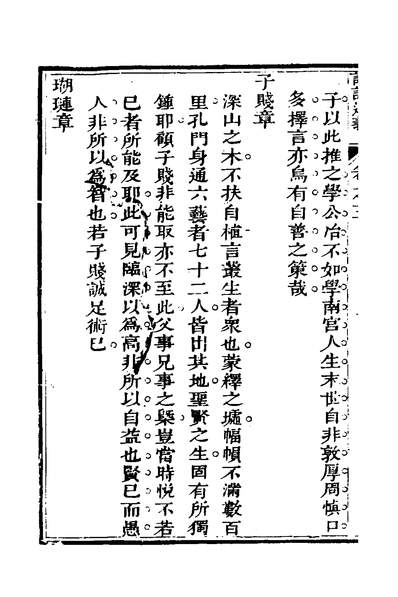 子以此推之學公冶不如學南宮人生末世自非敦厚周愼口
多擇言亦烏有自善之策哉
子賤章
深山之木不扶自植言叢生者衆也蒙繹之墟幅幀不滿數百
里孔門身通六藝者七十二人皆出其地聖賢之生固有所獨
鍾耶顧子賤非能取亦不至此父事兄事之槩豈當時悅不若
已者所能及耶此可見臨深以爲高非所以自益也賢已而愚
人非所以爲智也若子賤誠足術已
瑚璉章